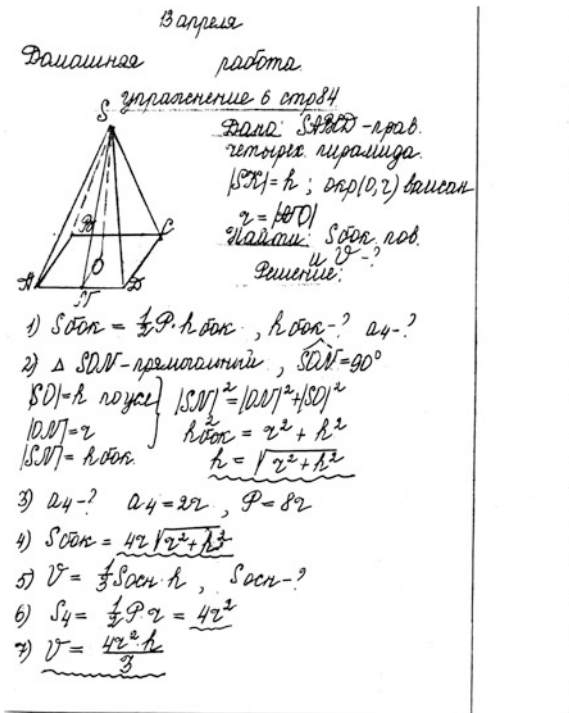 13 апреля
Домашняя работа.
Упражнение 6 стр 84
S
Дано: SABCD - прав.
четырех. пирамида.
|SK| = h ; окр (O, r) вписан
r = |NO|
Найти: Sбок. пов.
и V - ?
Решение:
B C
O
A D
N
1) Sбок = 1/2 P · h бок , h бок - ? a₄ - ?
2) Δ SON - прямоугольный , SON = 90°
|SO| = h по усл
|ON| = r
|SN| = h бок.
|SN|² = |ON|² + |SO|²
h²бок = r² + h²
h = √r² + h²
3) a₄ - ? a₄ = 2r , P = 8r
4) Sбок = 4r √r² + h²
5) V = 1/3 Sосн · h , Sосн - ?
6) S₄ = 1/2 P · r = 4r²
7) V = 4r² · h / 3